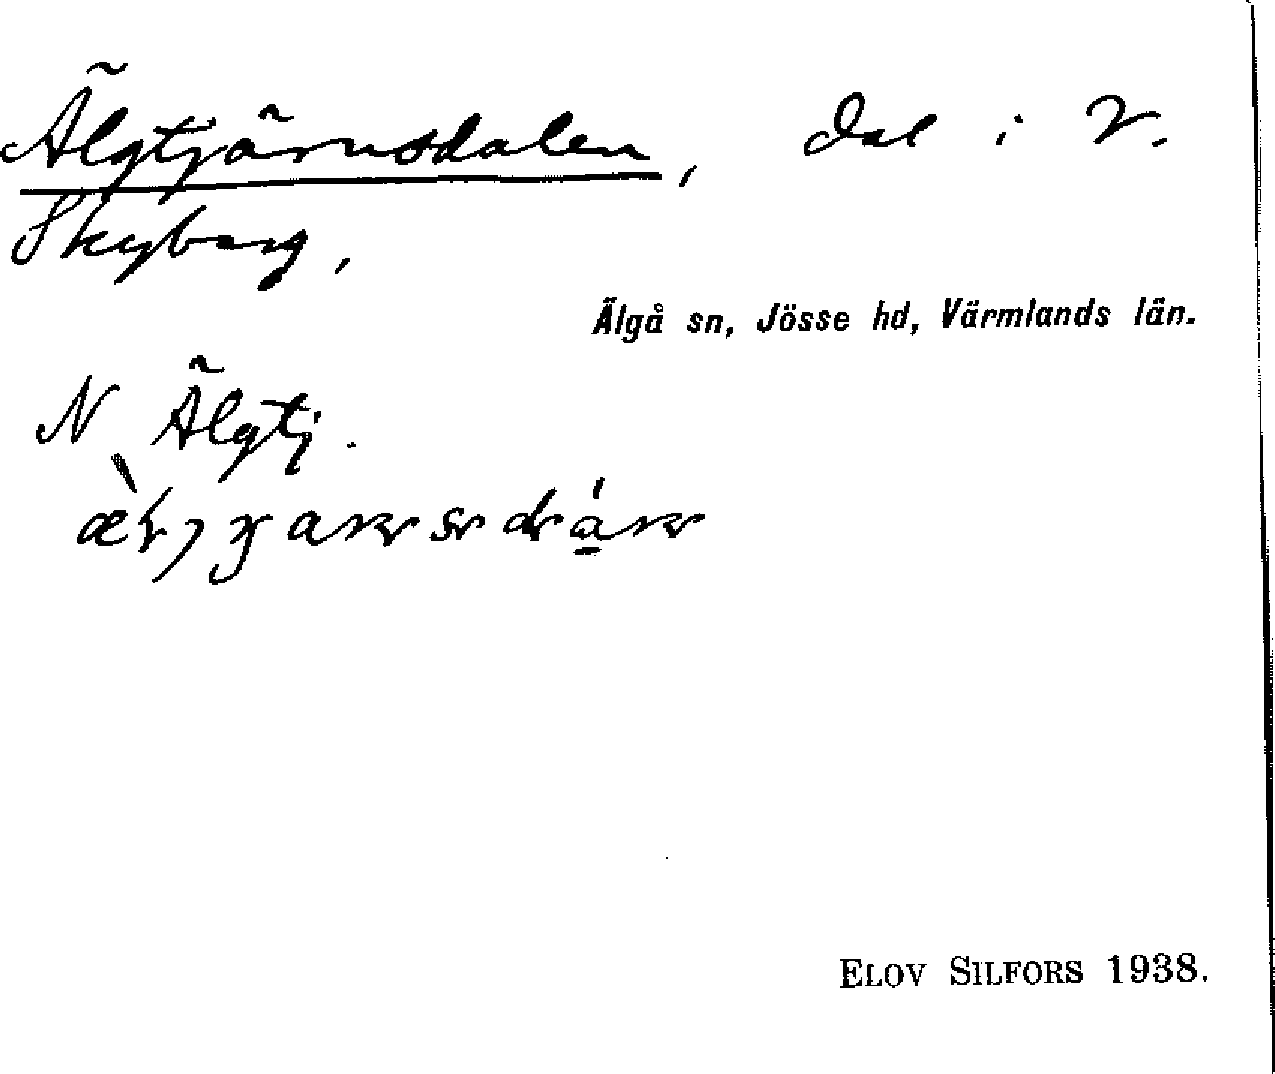 Älgtjärnsdalen, dal i V.
Skyberg,
Älgå sn, Jösse hd, Värmlands län.
N Älgtj.
ELOV SILFORS 1938.